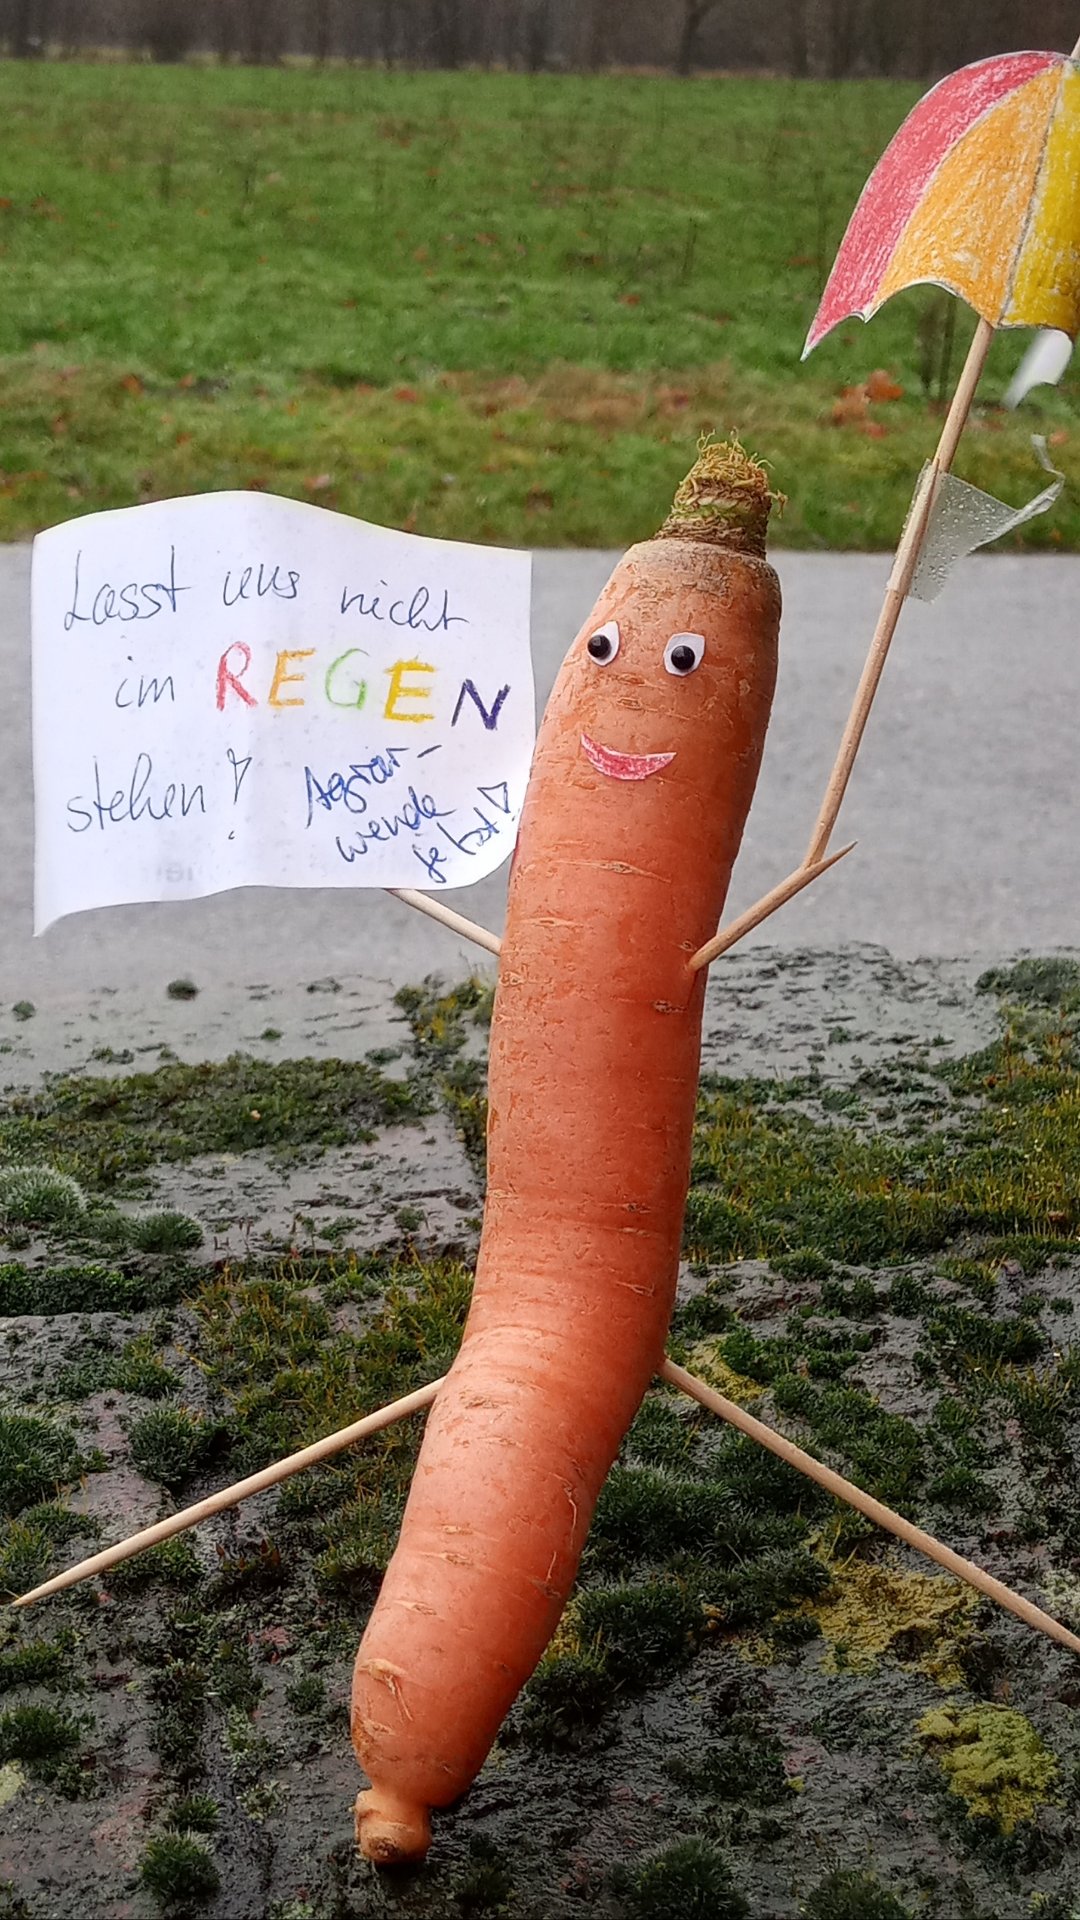 Lasst uns nicht
im REGEN
stehen!
Agrar-
wende
jetzt!